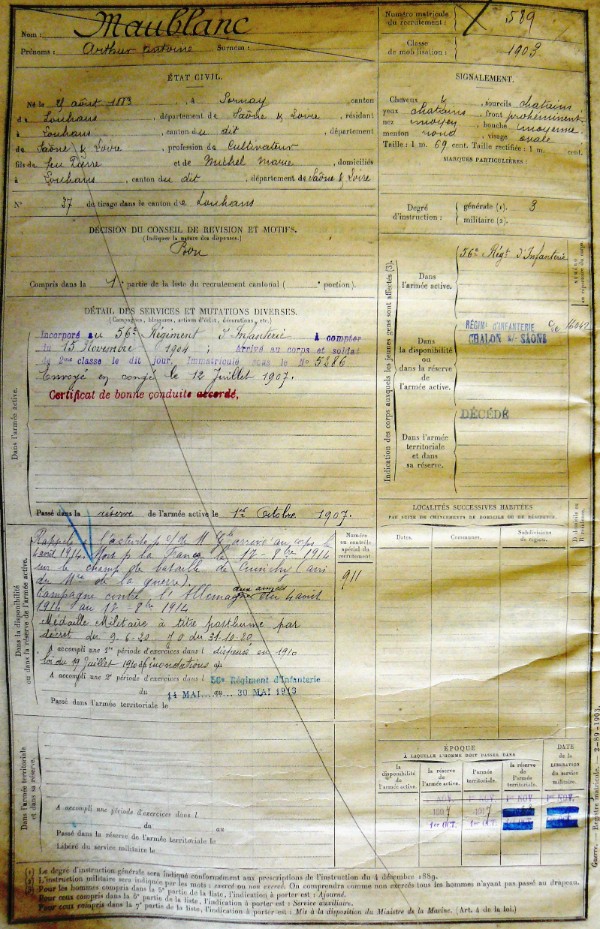 Nom : Maublanc
Prénoms : Arthur Antoine Surnom :
Numéro matricule
du recrutement : 589
Classe
de mobilisation : 1903
ÉTAT CIVIL.
Né le 27 août 1883, à Sornay, canton
de Louhans, département de Saône & Loire, résidant
à Louhans, canton du dit, département
de Saône & Loire, profession de Cultivateur
fils de feu Pierre et de Michel Marie, domiciliés
à Louhans, canton du dit, département de Saône & Loire
N° 37 de tirage dans le canton de Louhans
SIGNALEMENT.
Cheveux &, sourcils chatains
yeux chatains, front proéminent
nez moyen, bouche moyenne
menton rond, visage ovale
Taille : 1 m. 69 cent. Taille rectifiée : 1 m. cent.
MARQUES PARTICULIÈRES :
Degré
d'instruction :
générale (1). 3
militaire (2).
DÉCISION DU CONSEIL DE REVISION ET MOTIFS.
(Indiquer la nature des dispenses.)
Bon
Compris dans la 1e partie de la liste du recrutement cantonal ( portion).
DÉTAIL DES SERVICES ET MUTATIONS DIVERSES.
(Campagnes, blessures, actions d'éclat, décorations, etc.)
Incorporé au 56e Régiment d'Infanterie à compter
du 15 Novembre 1904 ; Arrivé au corps et soldat
de 2me classe le dit jour. Immatriculé sous le N° 5886
Envoyé en congé le 12 Juillet 1907.
Certificat de bonne conduite accordé,
Passé dans la réserve de l'armée active le 1er Octobre 1907.
Dans l'armée active.
Indication des corps auxquels les jeunes gens sont affectés (3).
Dans
l'armée active.
56e Régt d'Infanterie
Dans
la disponibilité
ou dans la réserve
de l'armée active.
RÉGIM. D'INFANTERIE
CHALON s/ SAÔNE
DÉCÉDÉ
Dans l'armée
territoriale
et dans
sa réserve.
Dans la disponibilité
ou dans la réserve de l'armée active.
le 17 - 8bre 1914
sur le champ de bataille de (avis
du Mre de la guerre).
Campagne contre l'Allemagne aux armées du 4 août
1914 au 17 - 8bre 1914
Médaille Militaire à titre posthume par
décret du 9-6-20 J.O du 31.10.20
A accompli une 1re période d'exercices dans l dispensé en 1910
loi du 19 juillet 1910 inondations
A accompli une 2e période d'exercices dans l 56e Régiment d'Infanterie
du 14 MAI au 30 MAI 1913
Passé dans l'armée territoriale le
Numéro
au contrôle
spécial du
recrutement
911
LOCALITÉS SUCCESSIVES HABITÉES
PAR SUITE DE CHANGEMENTS DE DOMICILE OU DE RÉSIDENCE.
Dates. Communes. Subdivisions
de région.
Dans l'armée territoriale
et dans sa réserve.
A accompli une période d'exercices dans l
du au
Passé dans la réserve de l'armée territoriale le
Libéré du service militaire le
ÉPOQUE
À LAQUELLE L'HOMME DOIT PASSER DANS
la
disponibilité
de l'armée active.
la réserve
de
l'armée active.
l'armée
territoriale.
la réserve
de
l'armée
territoriale.
DATE
de la
LIBÉRATION
du service
militaire.
Le degré d'instruction générale sera indiqué conformément aux prescriptions de l'instruction du 4 décembre 1889.
L'instruction militaire sera indiquée par les mots : exercé ou non exercé. On comprendra comme non exercés tous les hommes n'ayant pas passé au drapeau.
Pour les hommes compris dans la 5e partie de la liste, l'indication à porter est : Ajourné.
Pour ceux compris dans la 6e partie de la liste, l'indication à porter est : Service auxiliaire.
Pour ceux compris dans la 7e partie de la liste, l'indication à porter est : Mis à la disposition du Ministre de la Marine. (Art. 4 de la loi.)